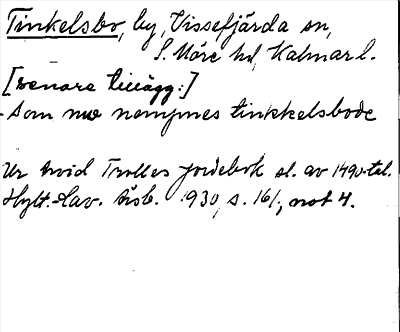 Tinkelsbo, by, Vissefjärda sn,
S. Möre hd, Kalmar l.
[Senare tillägg:]
- Som nw nempnes tinkkelsbode
Ur Arvid Trolles jordebok sl. av 1490-tal.
Hylt.-Cav. årsb. 1930, s. 161, not 4.